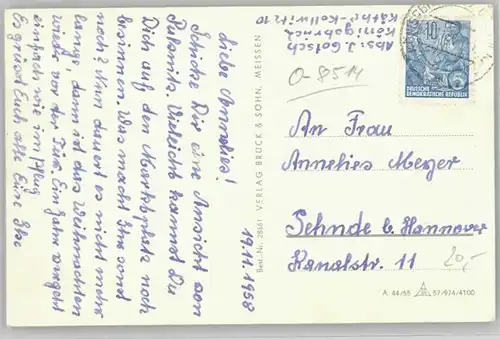 Abs: J. Golsch
Königsbrück
Käthe-Kollwitz 10
10
DEUTSCHE
DEMOKRATISCHE REPUBLIK
O-8514
19.11.1958
Liebe Annelies!
Schicke Dir eine Ansicht von
Pulsnitz. Vieleicht kannst Du
Dich auf den Marktplatz noch
besinnen. Was macht Ihr sonst
noch? Nun dauert es nicht mehr
lange, dann ist das Weihnachten
wieder vor der Tür. Ein Jahr vergeht
einfach wie im Flug
Es grüsst Euch alle Eure
Best.-Nr. 28661 VERLAG BRÜCK & SOHN, MEISSEN
An Frau
Annelies Meyer
Sehnde b. Hannover
Kanalstr. 11
20,-
A 44/58 57/974/4100